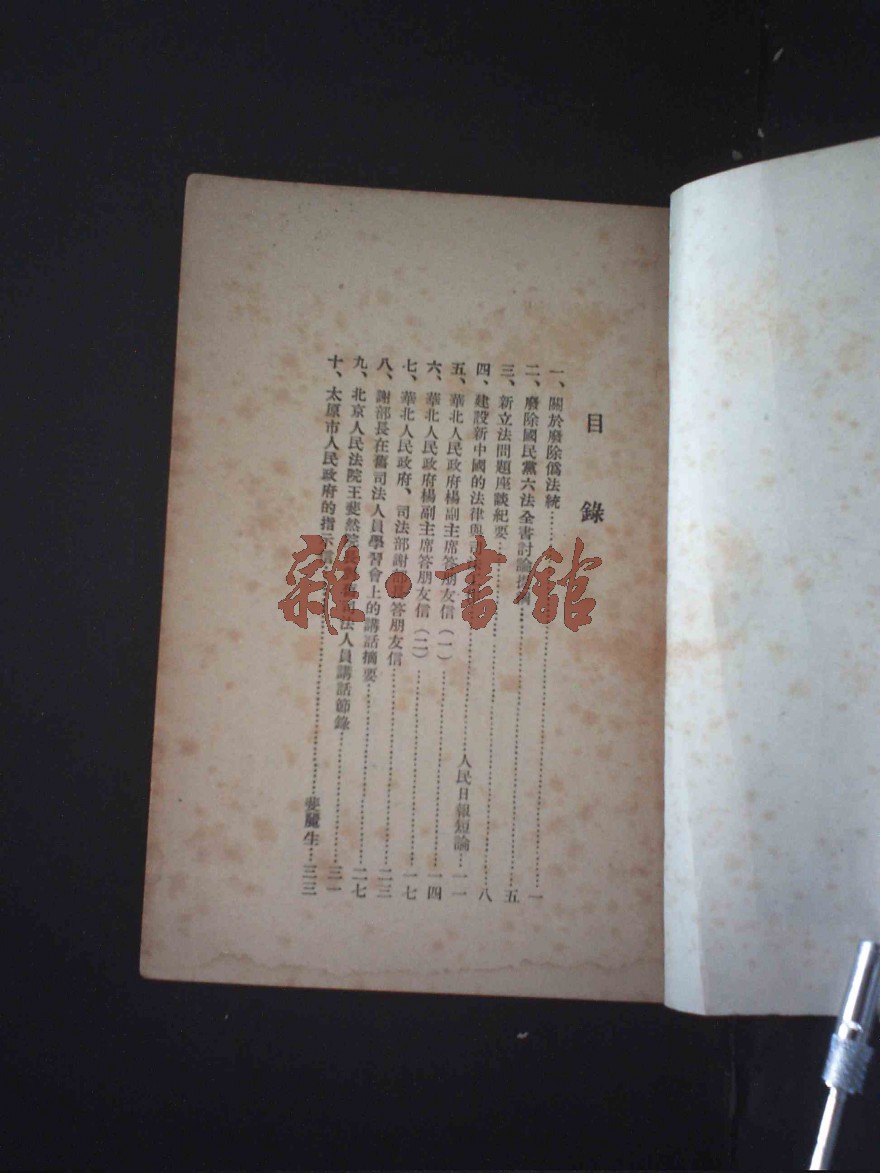 目錄
一、關於廢除僞法統……一
二、廢除國民黨六法全書討論……五
三、新立法問題座談紀要……八
四、建設新中國的法律與司……人民日報短論…一一
五、華北人民政府楊副主席答朋友信(一)……一四
六、華北人民政府楊副主席答朋友信(二)……一七
七、華北人民政府、司法部謝部長答朋友信……二三
八、謝部長在舊司法人員學習會上的講話摘要……二七
九、北京人民法院王斐然院長 舊司法人員講話節錄……三一
十、太原市人民政府的指示信……裴麗生…三三
雜·書館